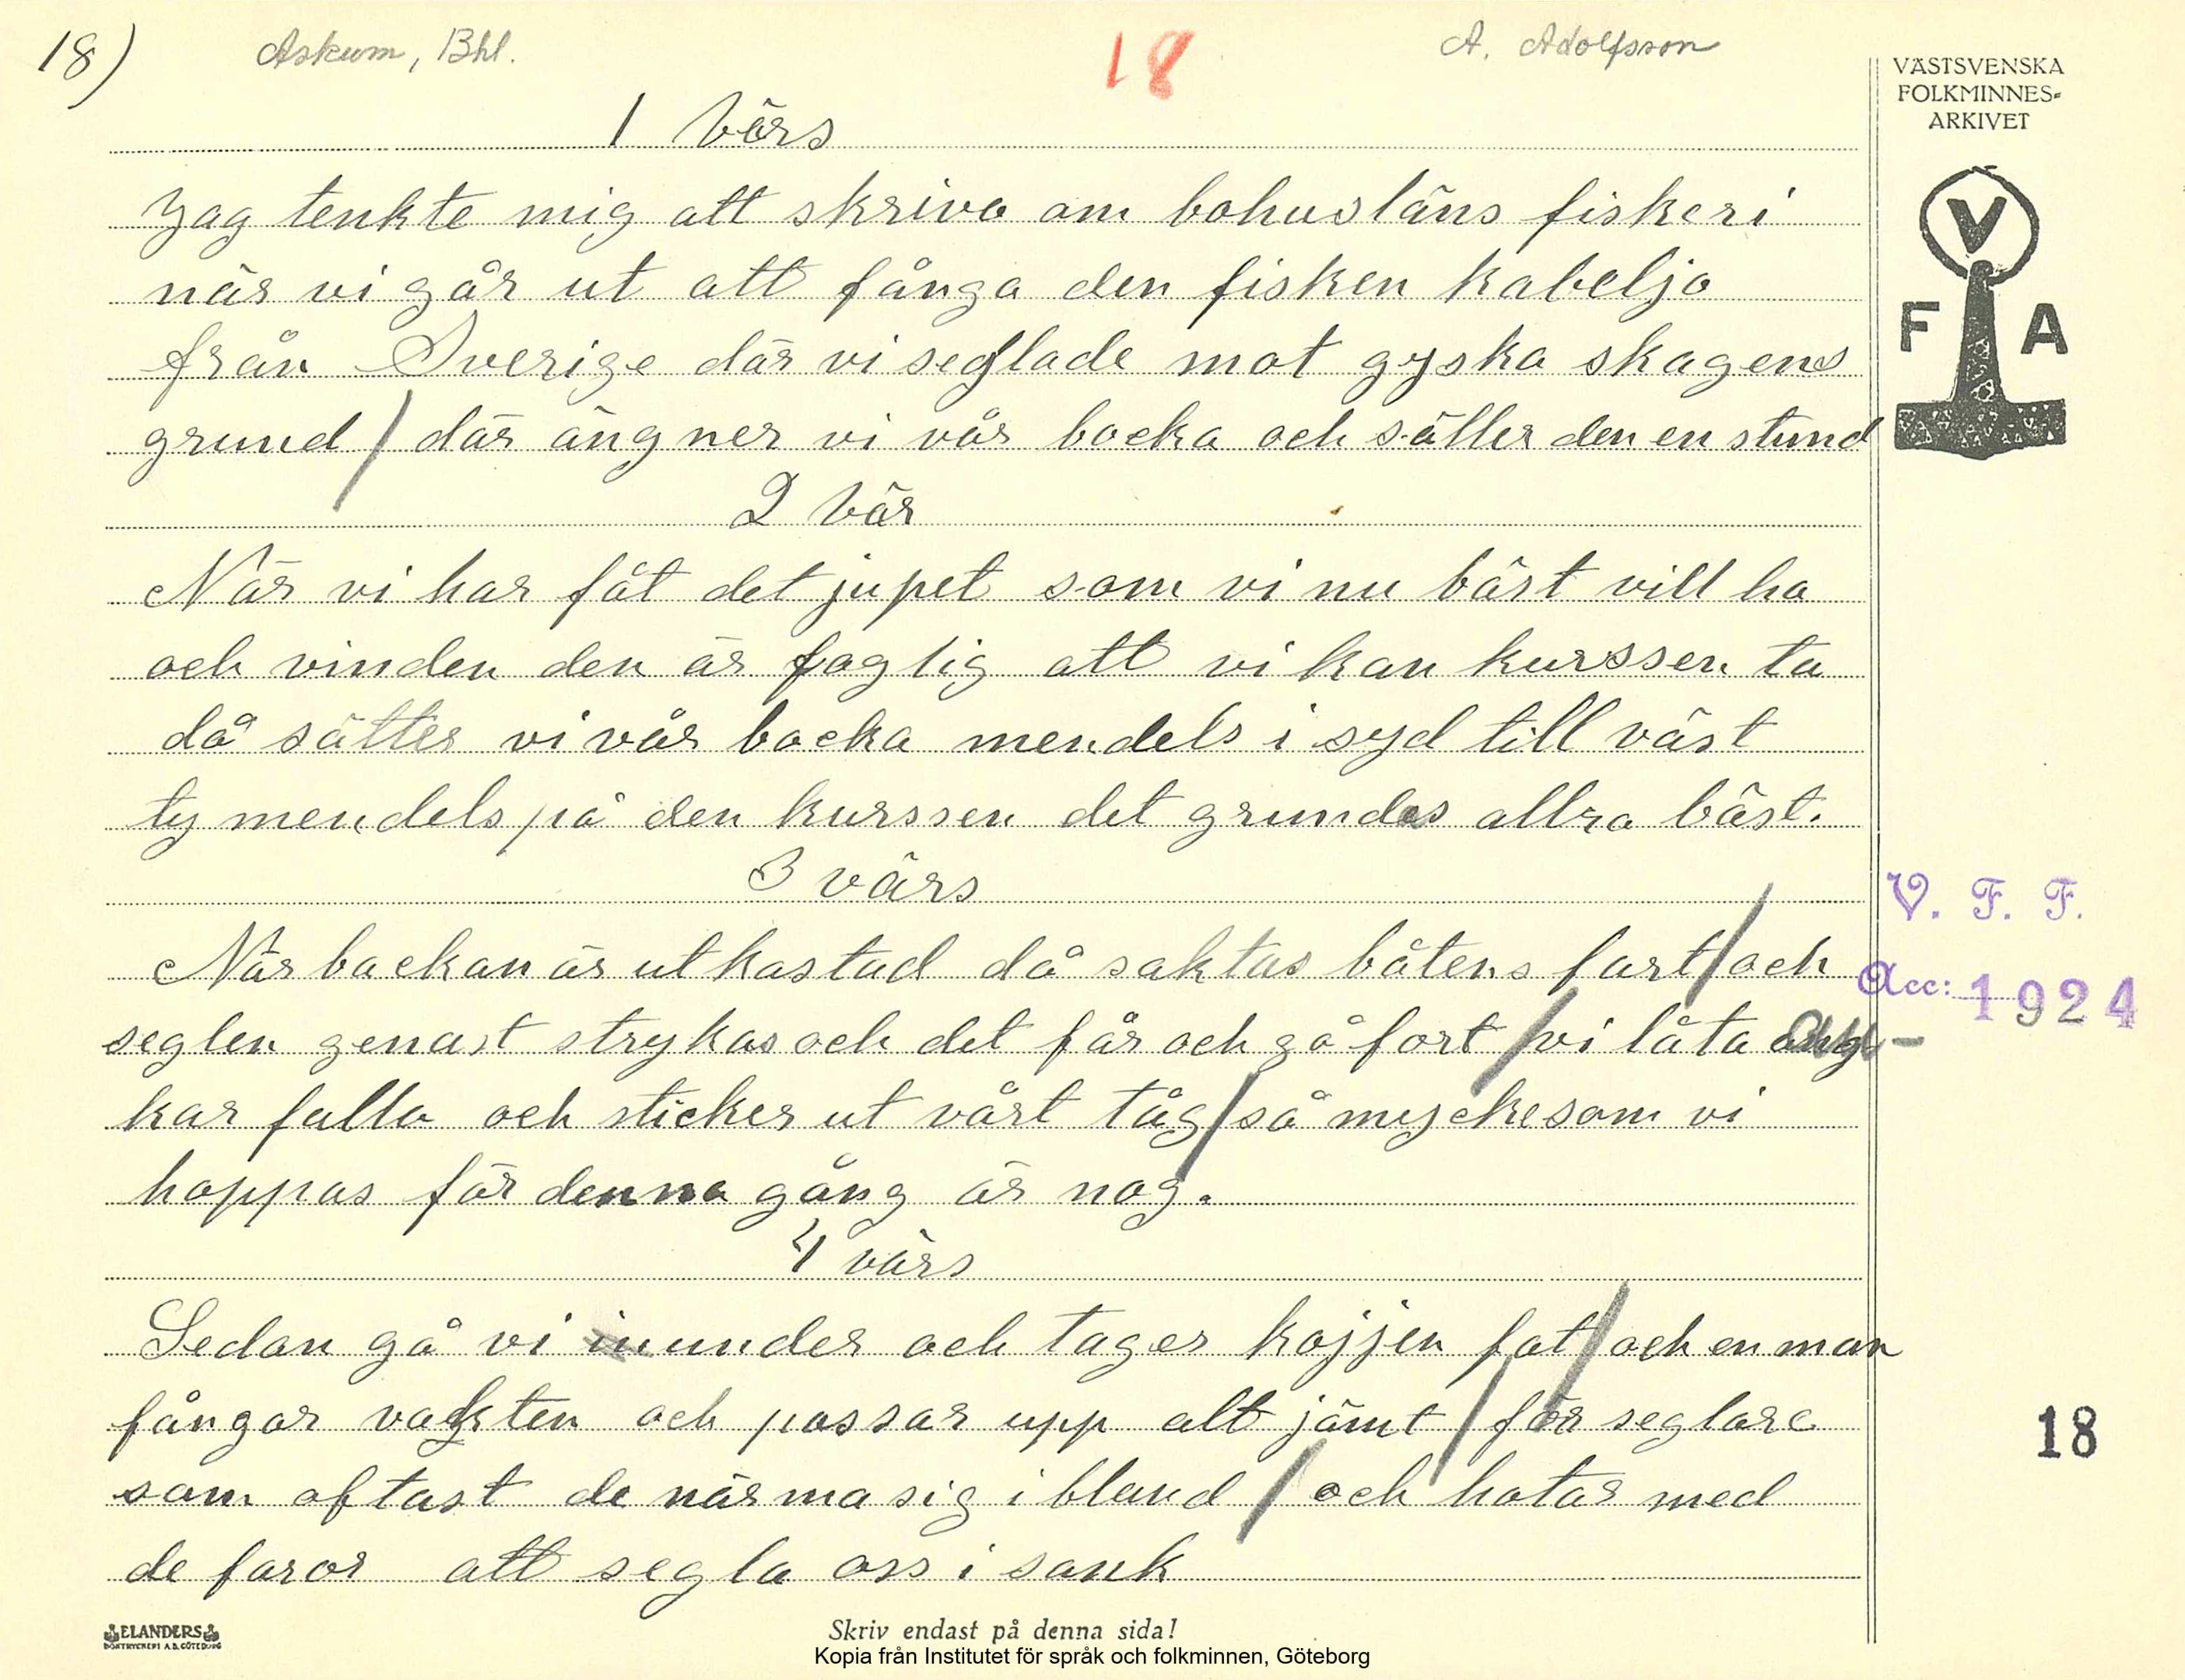 18)
Askum, Bhl.
18
A. Adolfsson
VÄSTSVENSKA
FOLKMINNES=
ARKIVET
V
F A
1 Värs
Jag tenkte mig att skriva om bohusläns fiskeri
när vi går ut att fånga den fisken kabeljo
från Sverige där vi seglade mot gyska skagens
grund / där ängner vi vår backa och sätter den en stund
2 Vär
När vi har fåt det jupet som vi nu bäst vill ha
och vinden den är foglig att vi kan kurssen ta
då sätter vi vår backa mendels i syd till väst
ty mendels på den kurssen det grundas allra bäst.
3 värs
När backan är utkastad då saktas båtens fart / och
seglen genast strykas och det får och gå fort / vi låta ang-
kar falla och sticker ut vårt tåg / så mycke som vi
hoppas för denna gång är nog.
4 värs
Sedan gå vi inunder och tager kojjen fat / och en man
fångar vakten och passar upp alt jämt / för seglare
som oftast de närma sig i bland / och hotar med
de faror att segla oss i sank
V. F. F.
Acc: 1924
18
ELANDERS
BOKTRYCKERI A.B. GÖTEBORG
Skriv endast på denna sida!
Kopia från Institutet för språk och folkminnen, Göteborg